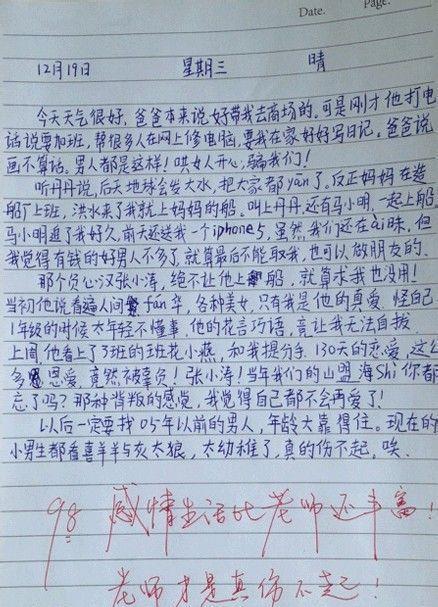 Date.
Page.
12月19日 星期三 晴
今天天气很好，爸爸本来说好带我去商场的。可是刚才他打电
话说要加班，帮很多人在网上修电脑，要我在家好好写日记。爸爸说
画不算话。男人都是这样！哄女人开心，骗我们！
听丹丹说，后天地球会发大水，把大家都yān了。反正妈妈在造
船厂上班，洪水来了我就上妈妈的船。叫上丹丹，还有马小明，一起上船。
马小明追了我好久，前天还送我一个iphone5，虽然我们还在ài昧，但
我觉得有钱的好男人不多了，就算最后不能娶我，也可以做朋友的。
那个负心汉张小涛，绝不让他上船，就算求我也没用！
当初他说看遍人间fán华，各种美女，只有我是他的真爱，怪自己
1年级的时候太年轻不懂事，他的花言巧语，竟让我无法自拔
上周，他看上了3班的班花小燕，和我提分手，130天的恋爱，这么
多恩爱，竟然被辜负！张小涛！当年我们的山盟海Shì你都
忘了吗？那种背叛的感觉，我觉得自己都不会再爱了！
以后一定要找05年以前的男人，年龄大靠得住。现在的
小男生都看喜羊羊与灰太狼，太幼稚了，真的伤不起，唉。
98 感情生活比老师还丰富！
老师才是真伤不起！